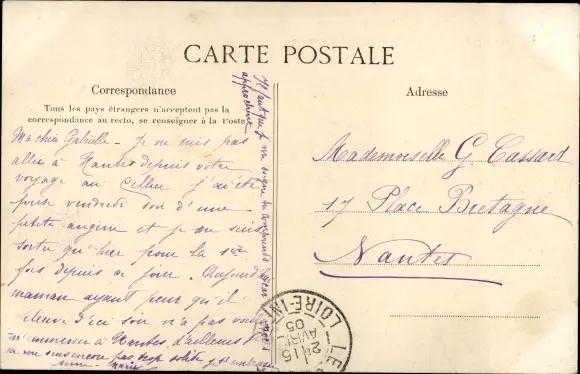 CARTE POSTALE
Correspondance
Tous les pays étrangers n'acceptent pas la
correspondance au recto, se renseigner à la Poste
Ma chère Gabrielle - Je ne suis pas
allée à Nantes depuis votre
voyage au Cellier j'ai été
prise vendredi soir d'une
petite angine et je ne suis
sortie qu'hier pour la 1ère
fois depuis ce jour. Aujourd'hui
maman ayant peur qu'il
pleuve d'ici ce soir n'a pas voulu
m'emmener à Nantes, d'ailleurs
je me sens encore pas trop solide
Marie
approchent
Adresse
Mademoiselle G. Cassard
17 Place Bretagne
Nantes
LOIRE-INF
15
AVRIL
05